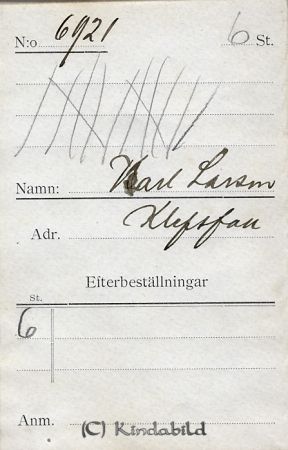 N:o 6921 6 St.
Namn: Karl Larson
Adr.
Efterbeställningar
St.
6
Anm.
(C) Kindabild